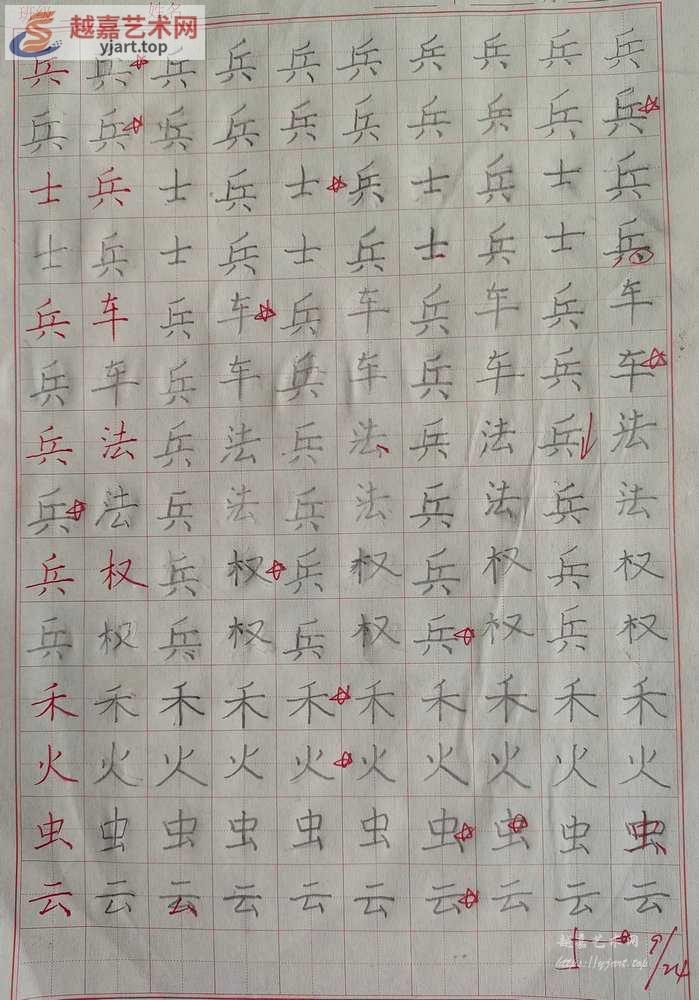 班级 姓名
越嘉艺术网
yjart.top
兵兵兵兵兵兵兵兵兵兵
兵兵兵兵兵兵兵兵兵兵
士兵士兵士兵士兵士兵
士兵士兵士兵士兵士兵
兵车兵车兵车兵车兵车
兵车兵车兵车兵车兵车
兵法兵法兵法兵法兵法
兵法兵法兵法兵法兵法
兵权兵权兵权兵权兵权
兵权兵权兵权兵权兵权
禾禾禾禾禾禾禾禾禾禾
火火火火火火火火火火
虫虫虫虫虫虫虫虫虫虫
云云云云云云云云云云
越嘉艺术网
https://yjart.top
9/24